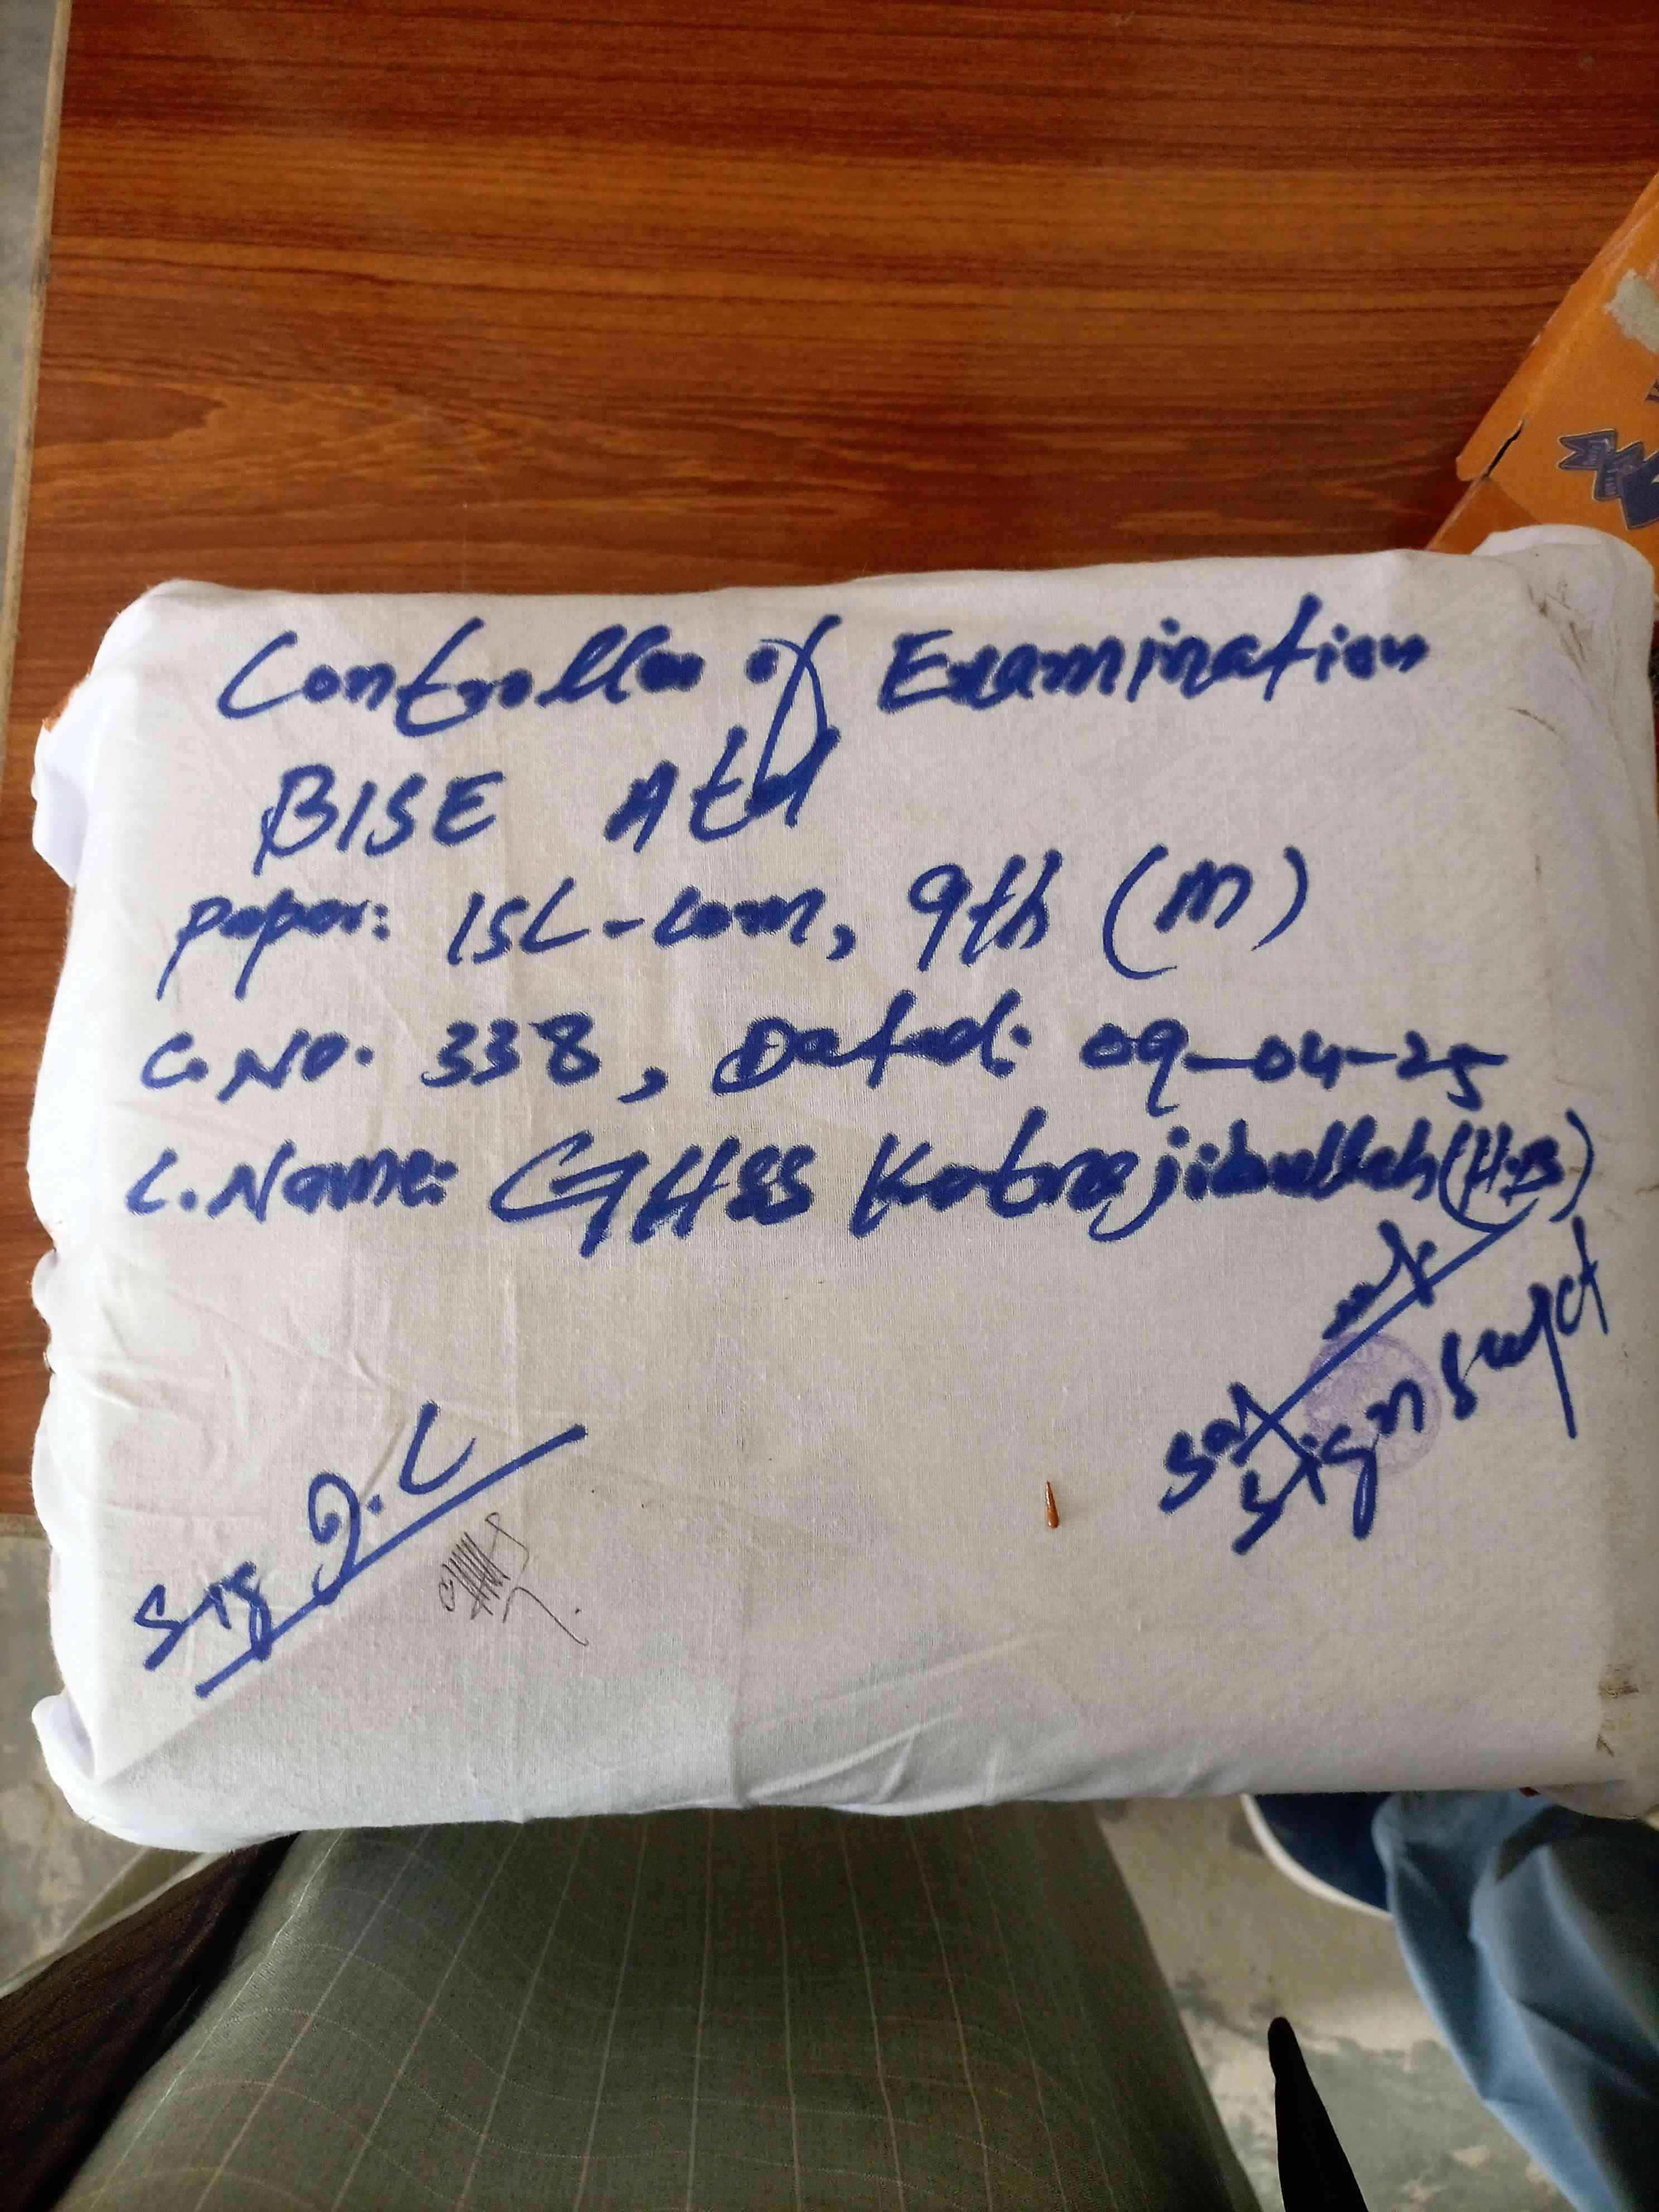 Controller of Examination
BISE Atd
Paper: ISL-Com, 9th (M)
C.No. 338, Dated: 09-04-25
C.Name: GHSS Kotnajibullah (H.B)
Sig R.I
Sd/
Sign Supdt